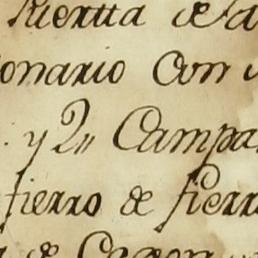 Puertta de la
onario Con
y 2,, Campa
fierro de fierr
de